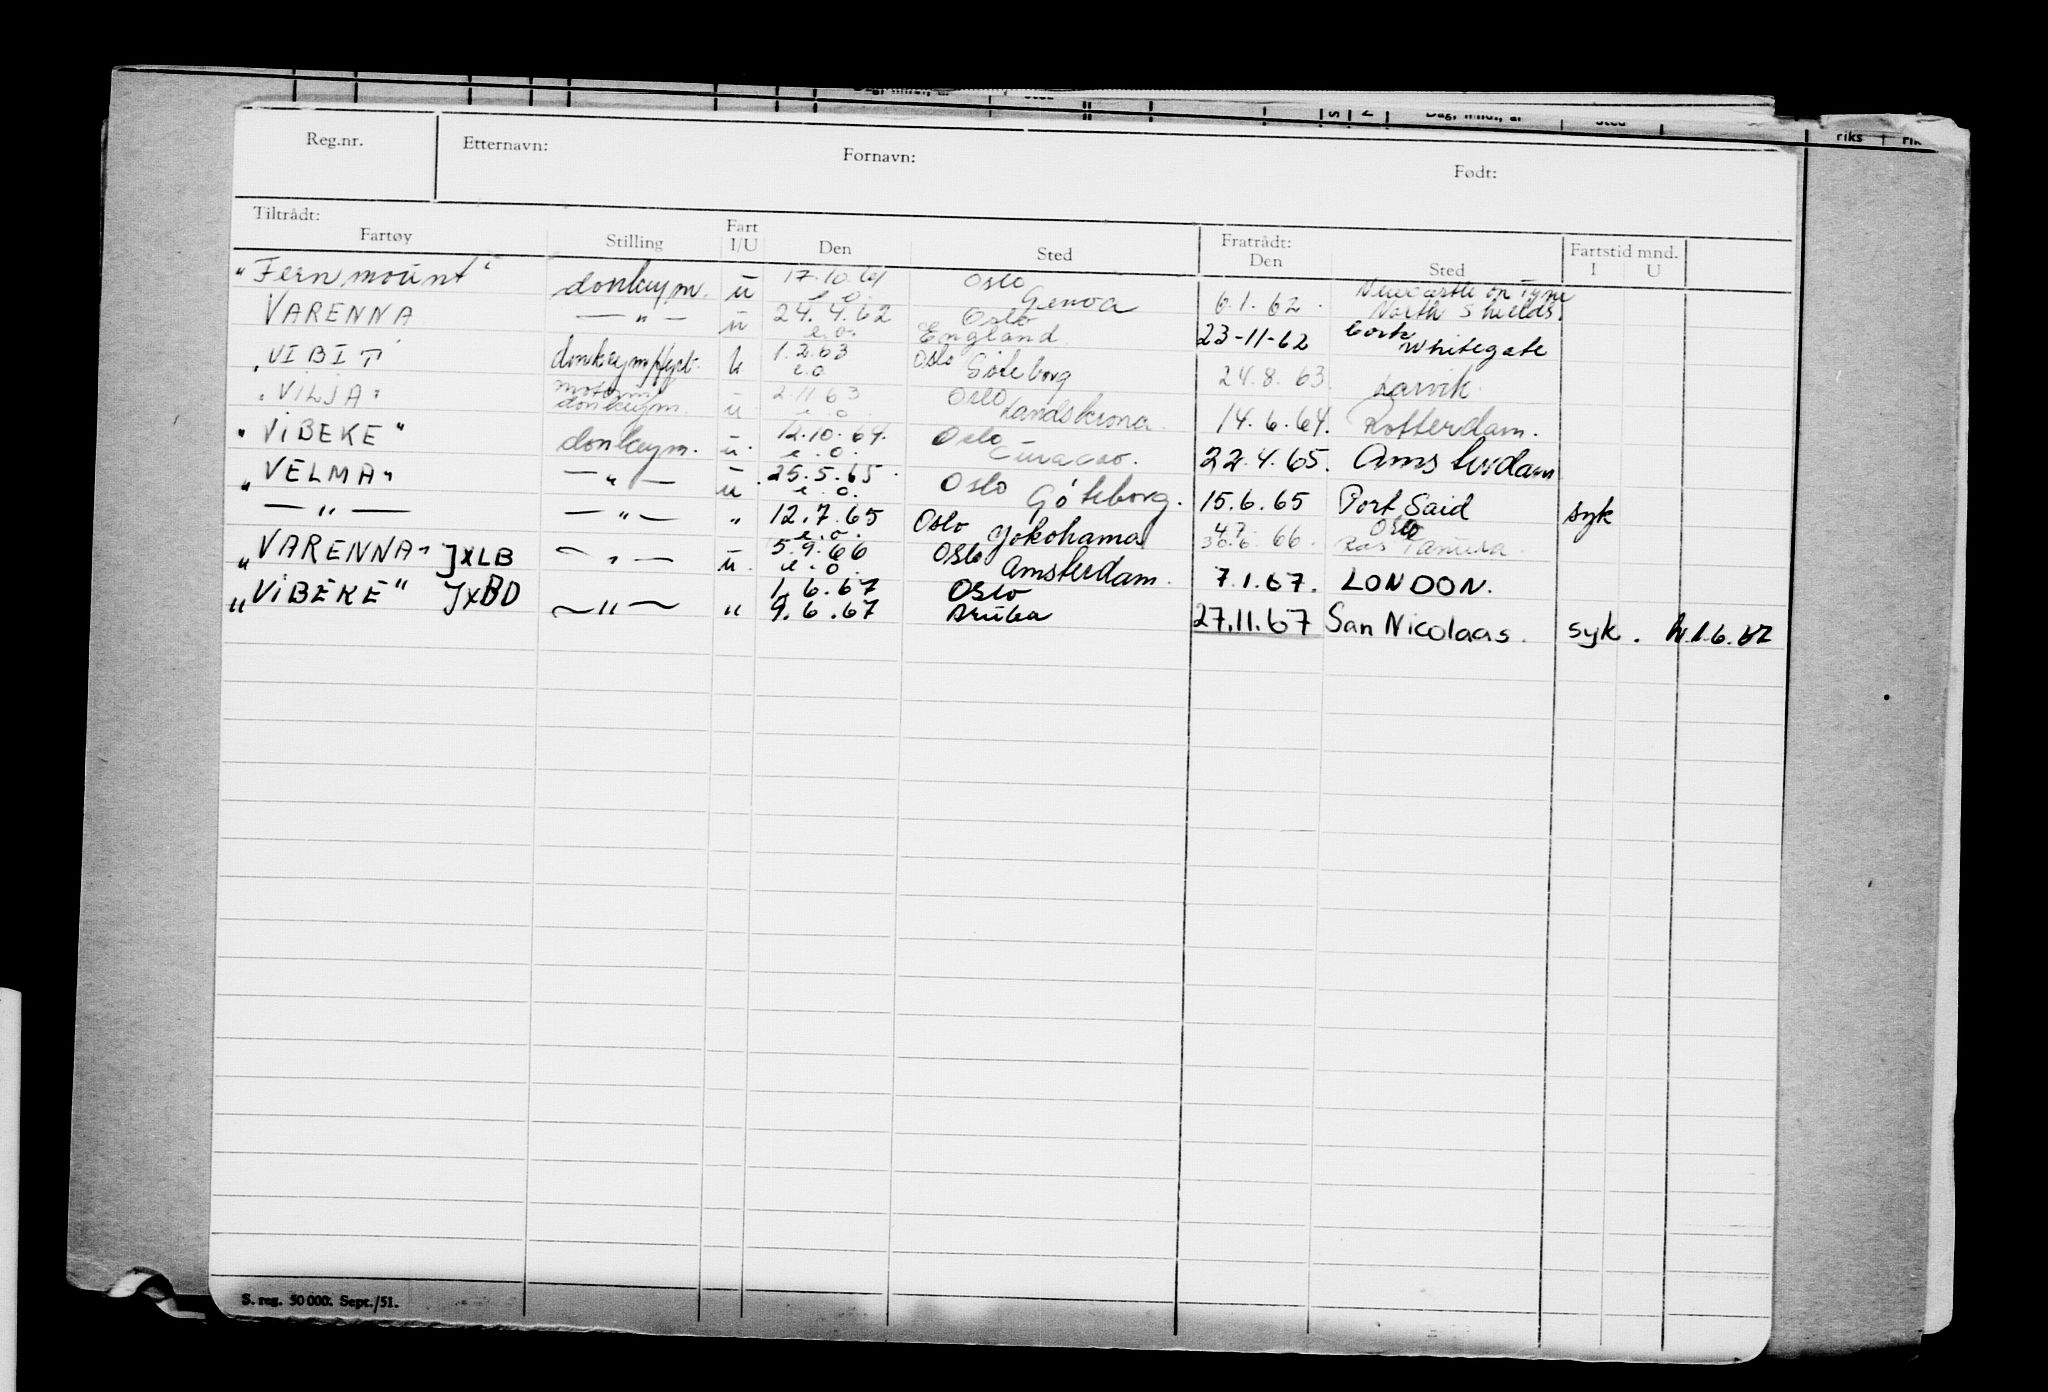 Reg.nr. Etternavn: Fornavn: Født:
Tiltrådt: Fratrådt: Fartstid mnd.
Fartøy Stilling Fart I/U Den Sted Den Sted I U
"Fernmount" donkeym. ū 17.10.61 Oslo Newcastle on Tyne
e.o. Genoa 6.1.62. North Shields.
VARENNA —"— ū 24.4.62 Oslo
e.o. England 23-11-62 Cork Whitegate
"VIBIT" u 1.2.63 Oslo
e.o Göteborg 24.8.63. Larvik.
"VILJA" motorm donkeym. ū 2.11 63 Oslo
e.o. Landskrona. 14.6.64. Rotterdam.
"ViBEKE" donkeym. ū. 12.10.64. Oslo
e.o. Curacao. 22.4.65. Amsterdam
"VELMA" —"— ū 25.5.65. Oslo
e.o. Göteborg. 15.6.65 Port Said syk
—"— —"— " 12.7.65 Oslo 4.7 Oslo
e.o. Yokohama 30.6. 66. Ras Tanura.
"VARENNA" JXLB —"— ū. 5.9.66 Oslo
e.o. Amsterdam. 7.1.67. LONDON.
"ViBEKE" JXBD —"— " 1.6.67 Oslo
9.6.67 Aruba 27.11.67 San Nicolaas. syk. h.1.6.67
S. reg. 50 000. Sept./51.